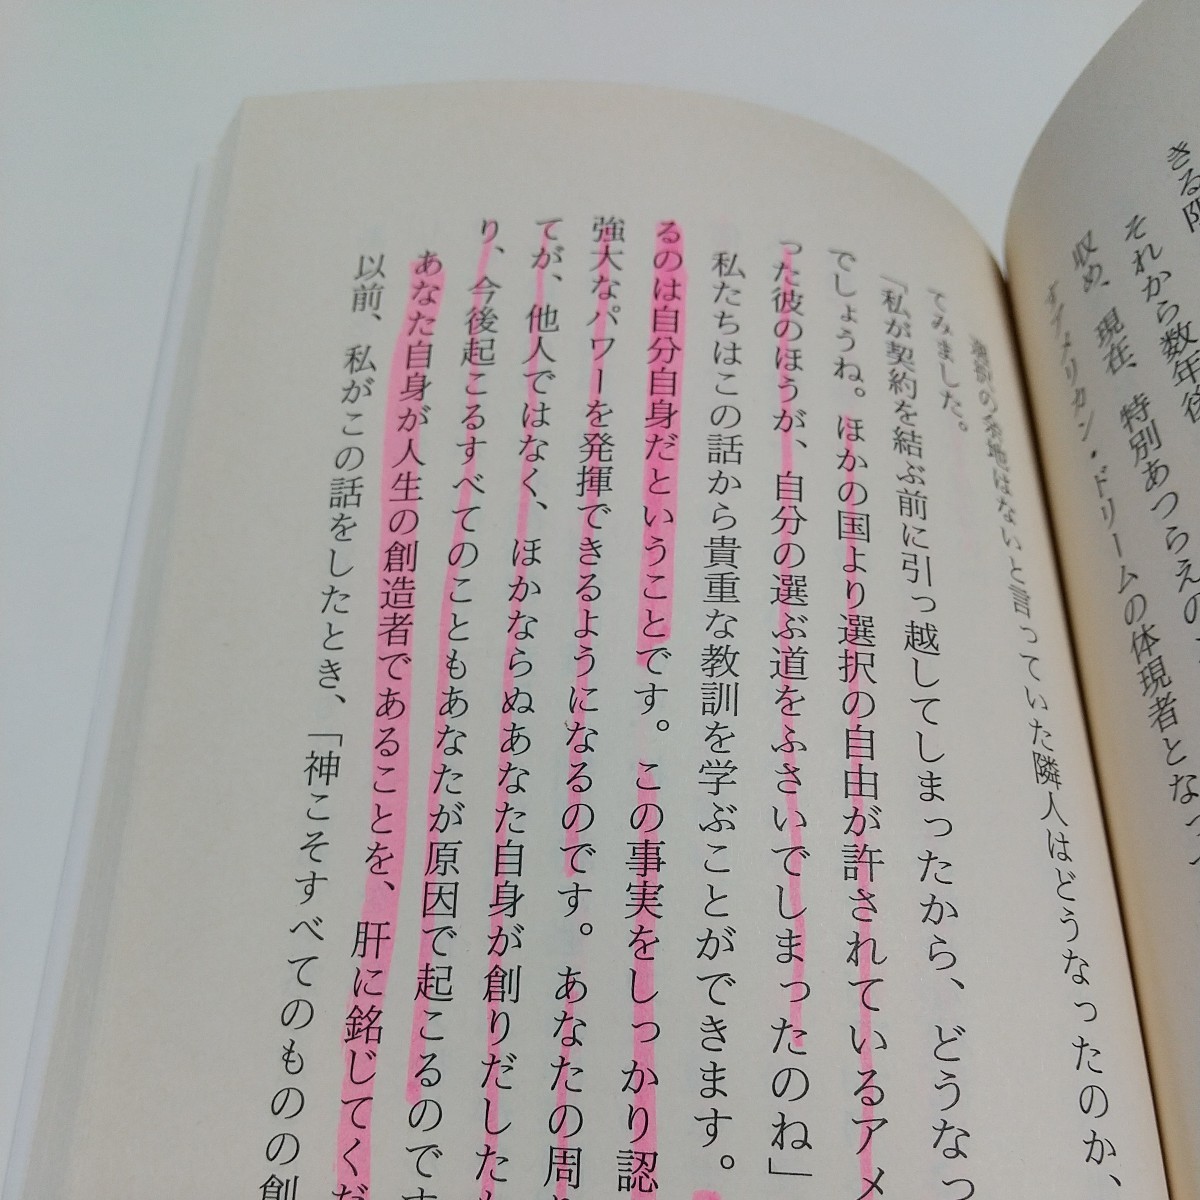 きる限
それから数年後
収め、現在、特別あつらえの
すアメリカン・ドリームの体現者とな
選択の余地はないと言っていた隣人はどうなったのか、
てみました。
「私が契約を結ぶ前に引っ越してしまったから、どうなっ
でしょうね。ほかの国より選択の自由が許されているアメ
った彼のほうが、自分の選ぶ道をふさいでしまったのね」
私たちはこの話から貴重な教訓を学ぶことができます。
るのは自分自身だということです。この事実をしっかり認
強大なパワーを発揮できるようになるのです。あなたの周り
てが、他人ではなく、ほかならぬあなた自身が創りだしたも
り、今後起こるすべてのこともあなたが原因で起こるのです
あなた自身が人生の創造者であることを、肝に銘じてくだ
以前、私がこの話をしたとき、「神こそすべてのものの創